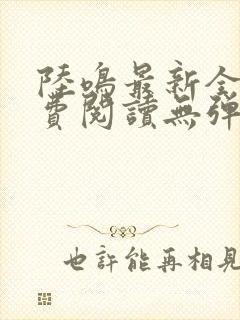 陸鳴最新全
費閱讀無彈
也許能再相見